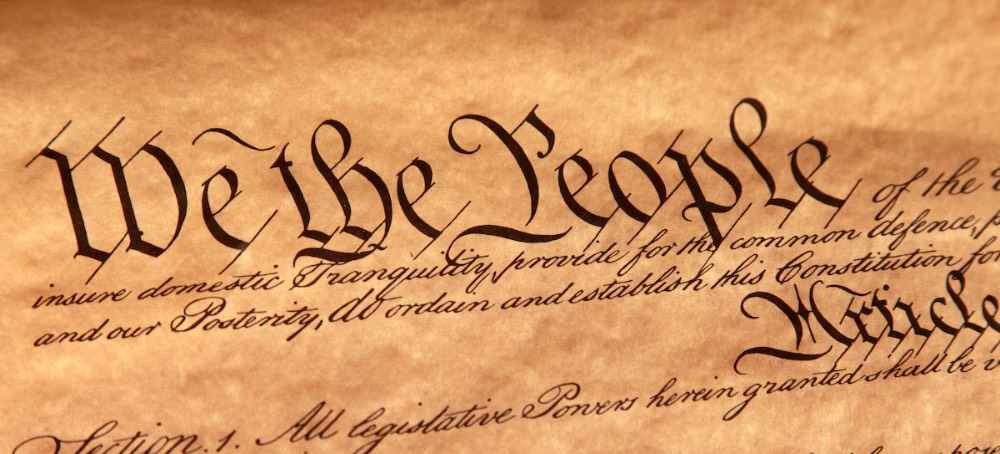 We the People of the
insure domestic Tranquility, provide for the common defence,
and our Posterity, do ordain and establish this Constitution for
Article
Section. 1. All legislative Powers herein granted shall be